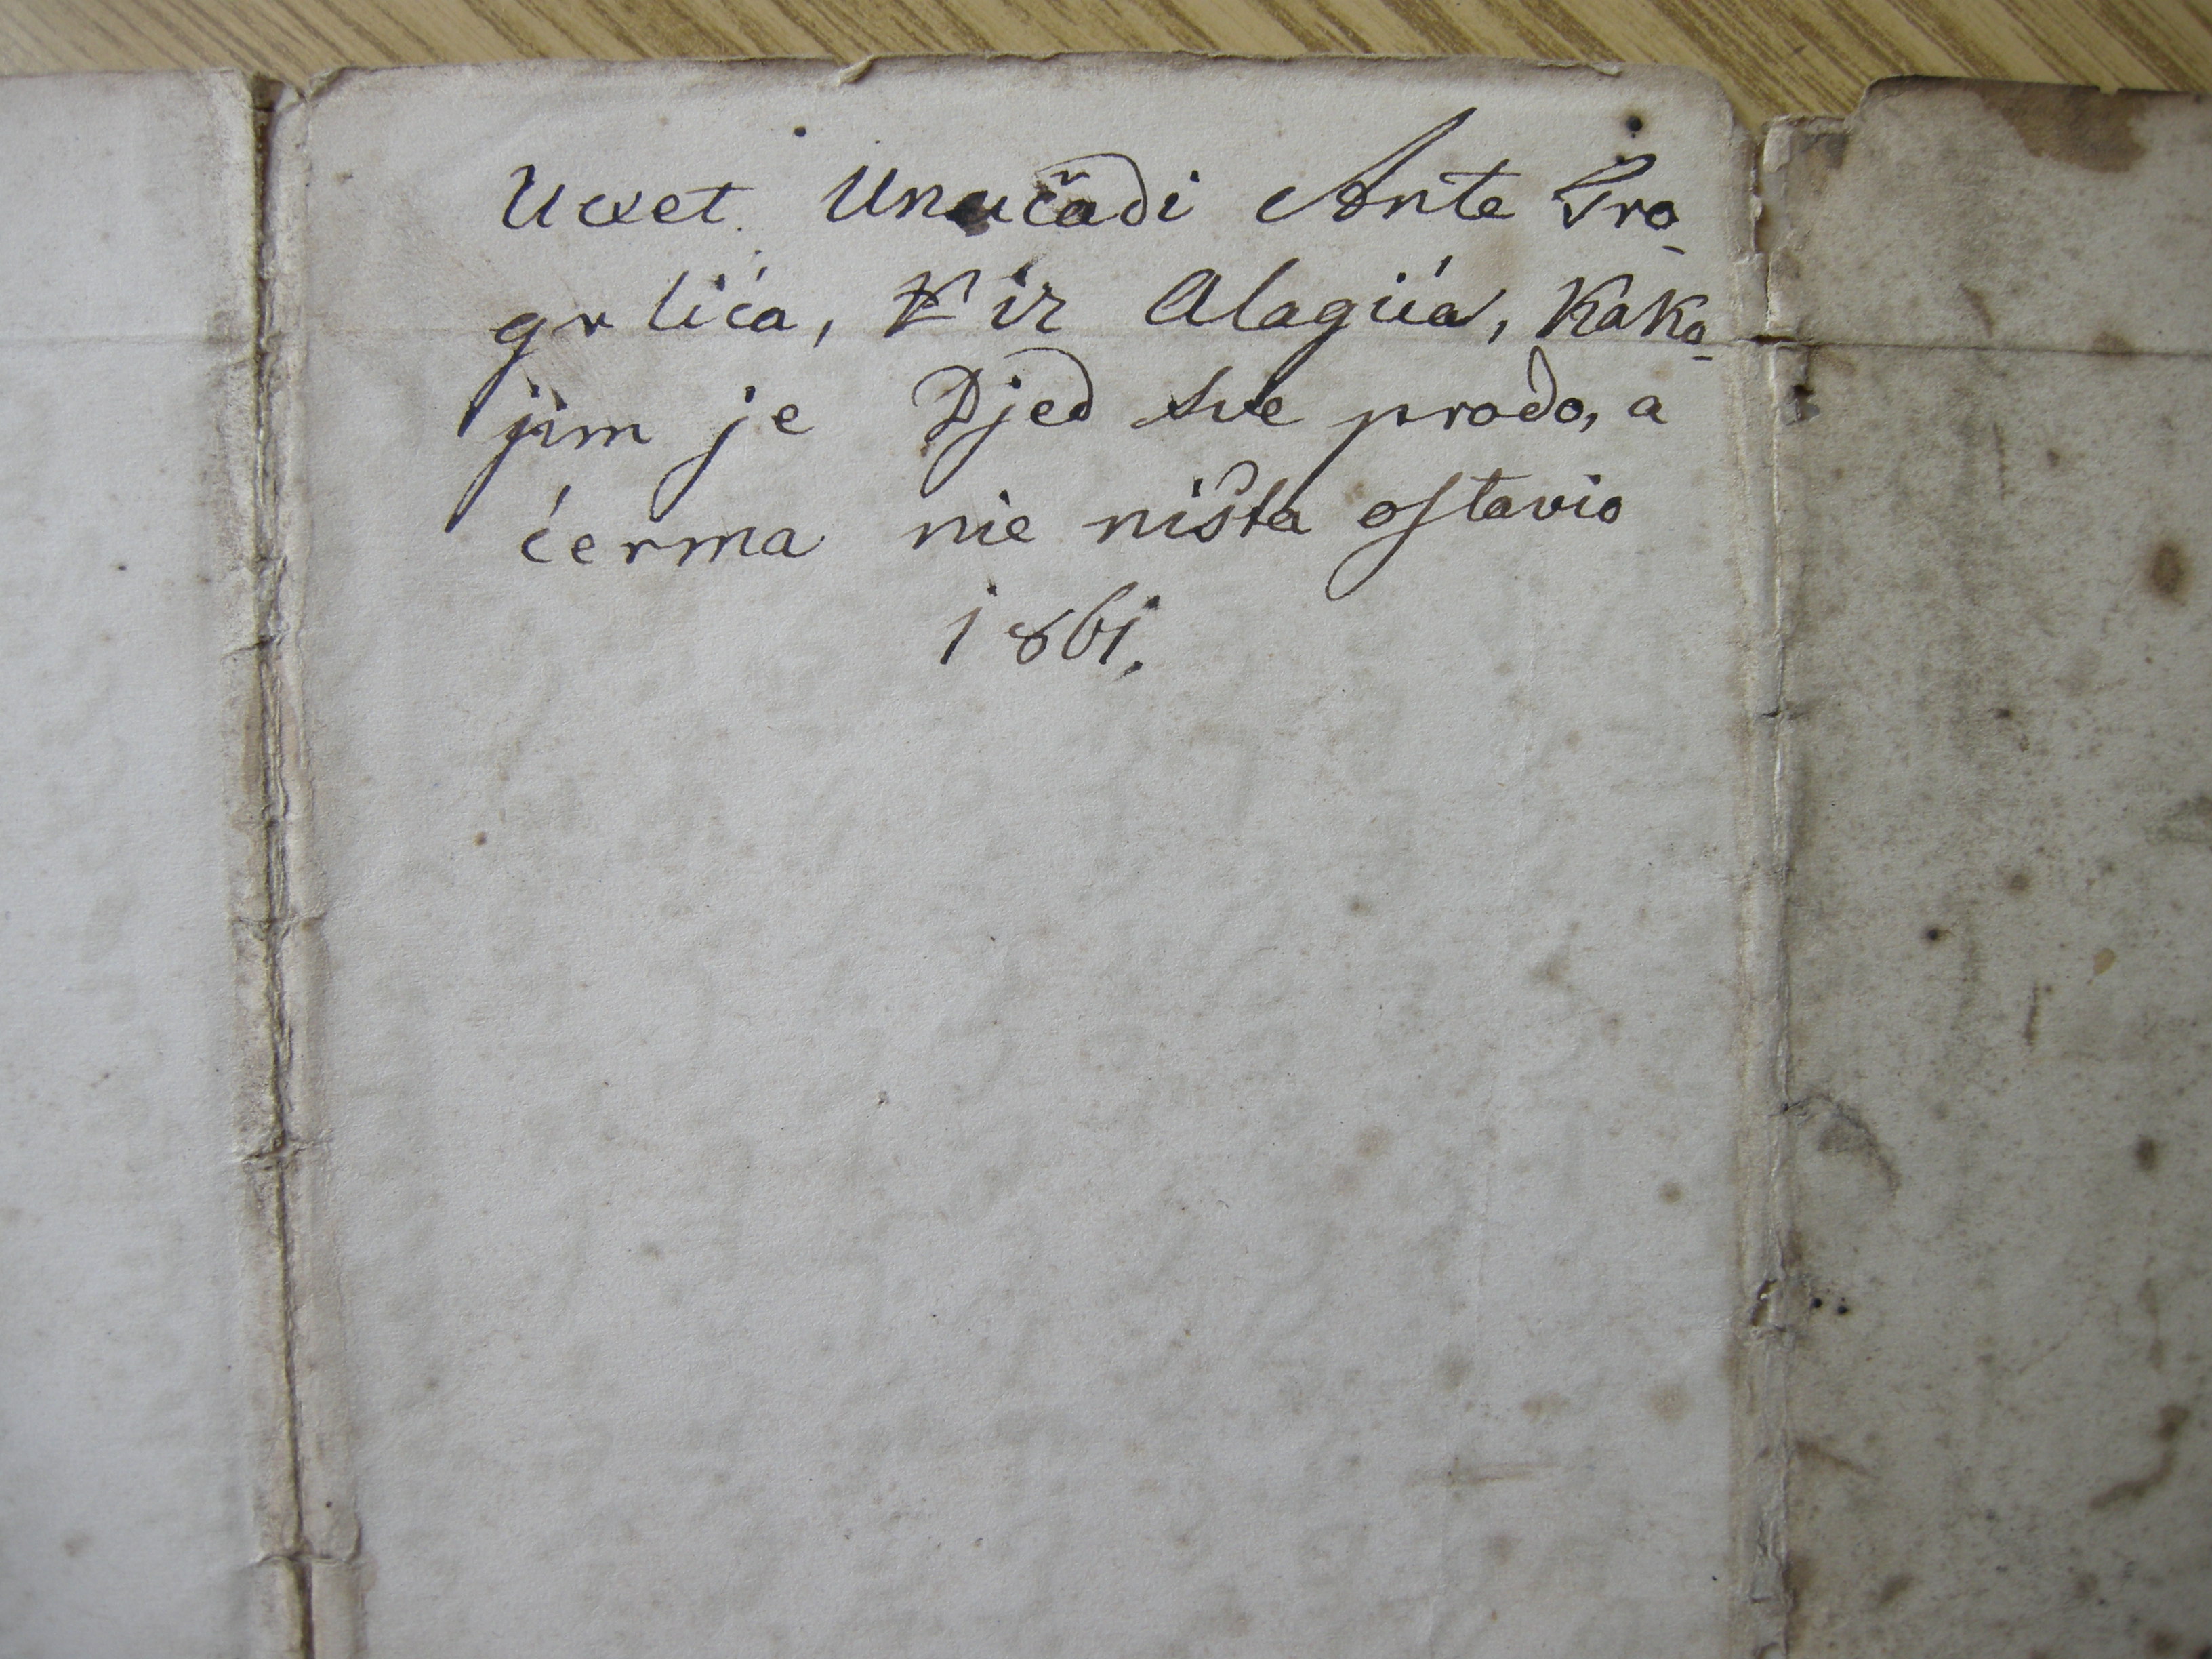 Uvet Unučadi Ante Pro-
grlića, iz Alagića, Kako
jim je Djed sve prodo, a
ćerma nie ništa ostavio
1861.